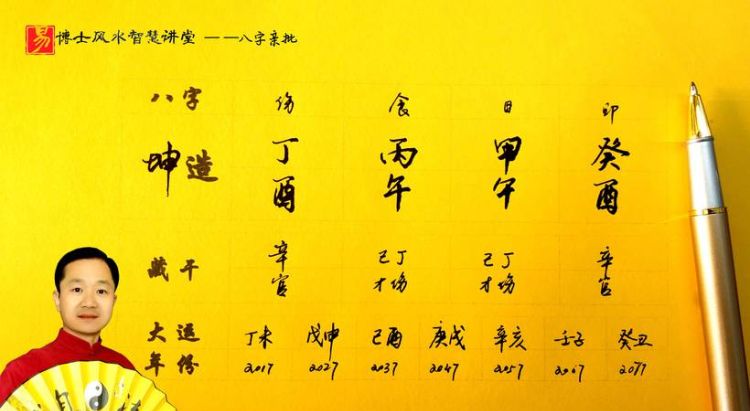 易 博士风水智慧讲堂 ——八字亲批
八字 伤 食 日 印
坤造 丁 丙 甲 癸
酉 午 午 酉
藏干 辛 己丁 己丁 辛
官 才伤 才伤 官
大运 丁未 戊申 己酉 庚戌 辛亥 壬子 癸丑
年份 2017 2027 2037 2047 2057 2067 2077